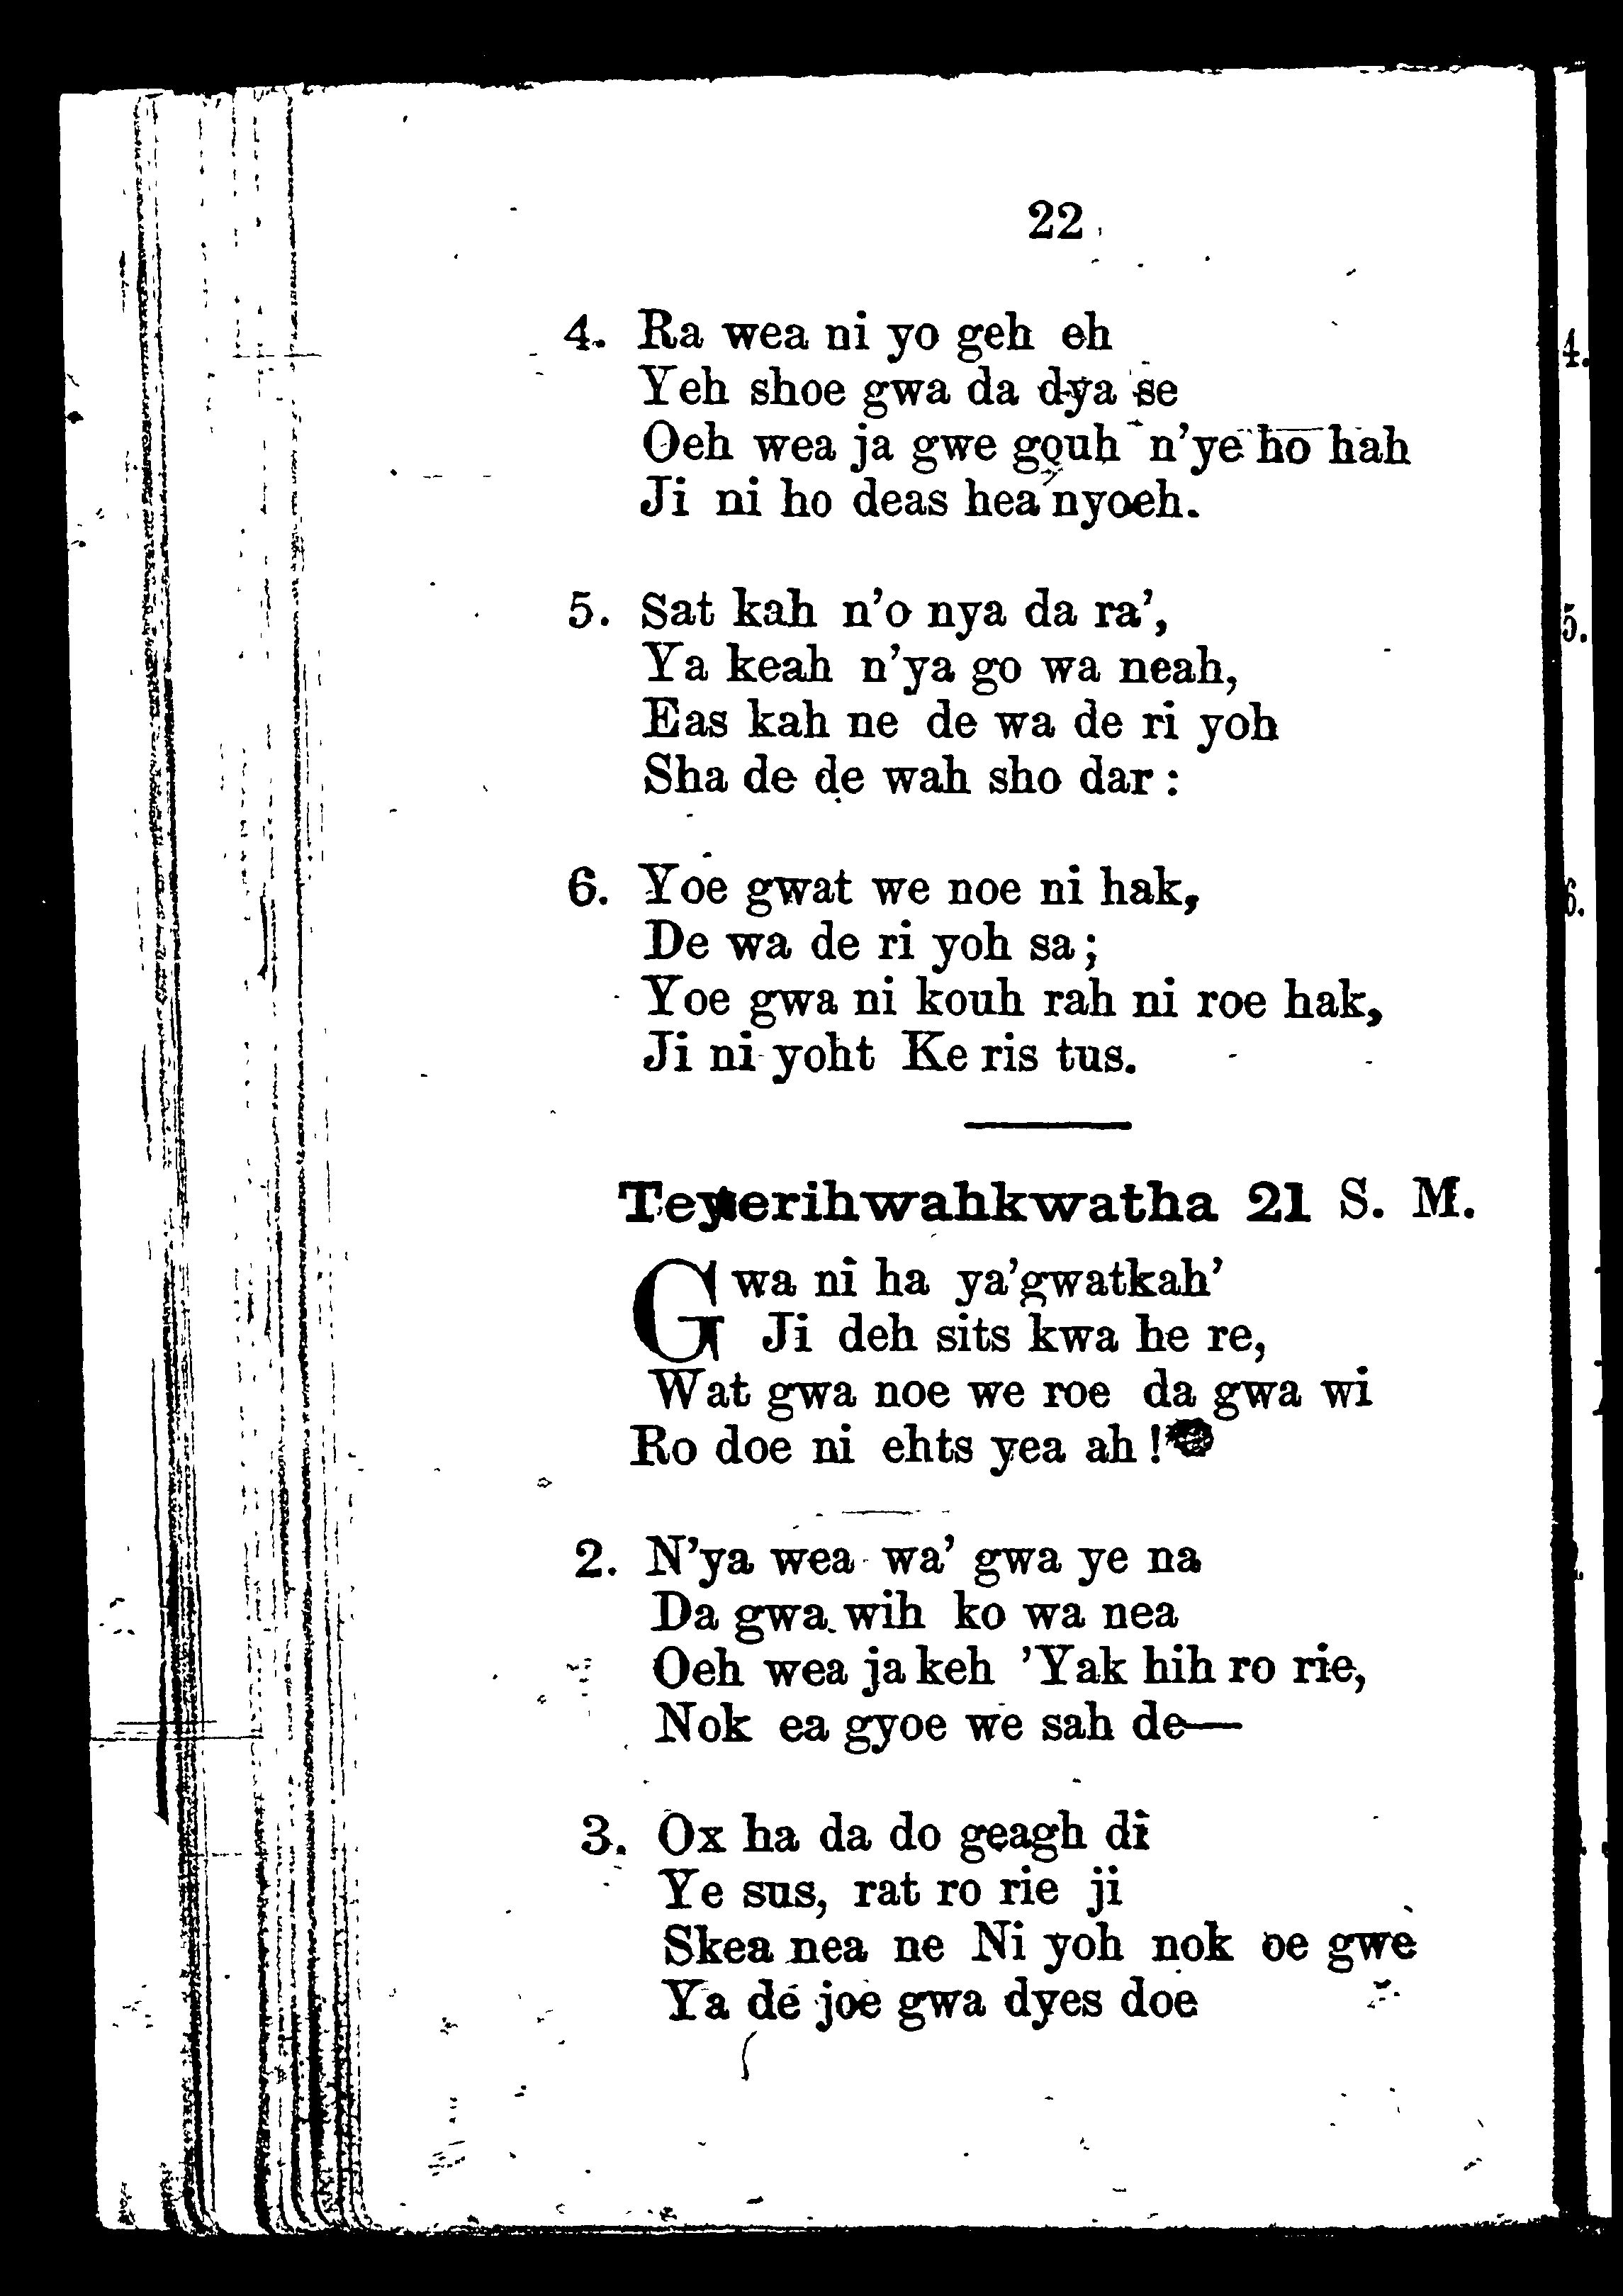 22
4. Ra wea ni yo geh eh
Yeh shoe gwa da dya se
Oeh wea ja gwe gouh n'ye ho hah
Ji ni ho deas hea nyoeh.
5. Sat kah n'o nya da ra',
Ya keah n'ya go wa neah,
Eas kah ne de wa de ri yoh
Sha de de wah sho dar :
6. Yoe gwat we noe ni hak,
De wa de ri yoh sa ;
Yoe gwa ni kouh rah ni roe hak,
Ji ni yoht Ke ris tus.
Teyerihwahkwatha 21 S. M.
Gwa ni ha ya'gwatkah'
Ji deh sits kwa he re,
Wat gwa noe we roe da gwa wi
Ro doe ni ehts yea ah !
2. N'ya wea wa' gwa ye na
Da gwa wih ko wa nea
Oeh wea ja keh 'Yak hih ro rie,
Nok ea gyoe we sah de—
3. Ox ha da do geagh di
Ye sus, rat ro rie ji
Skea nea ne Ni yoh nok oe gwe
Ya de joe gwa dyes doe
4.
5.
6.